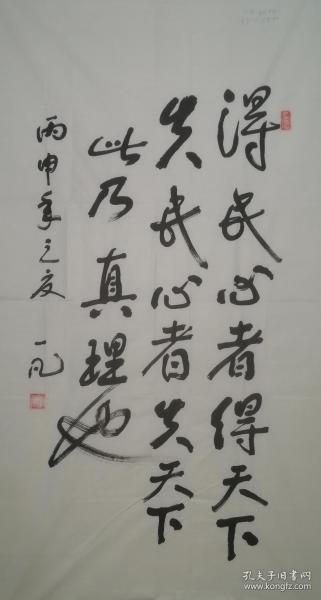 得民心者得天下
失民心者失天下
此乃真理也
丙申年之夏
一凡
孔夫子旧书网